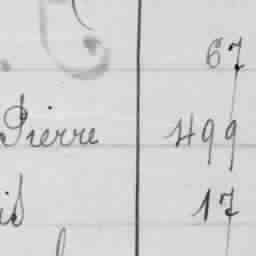 67
Pierre 499
17